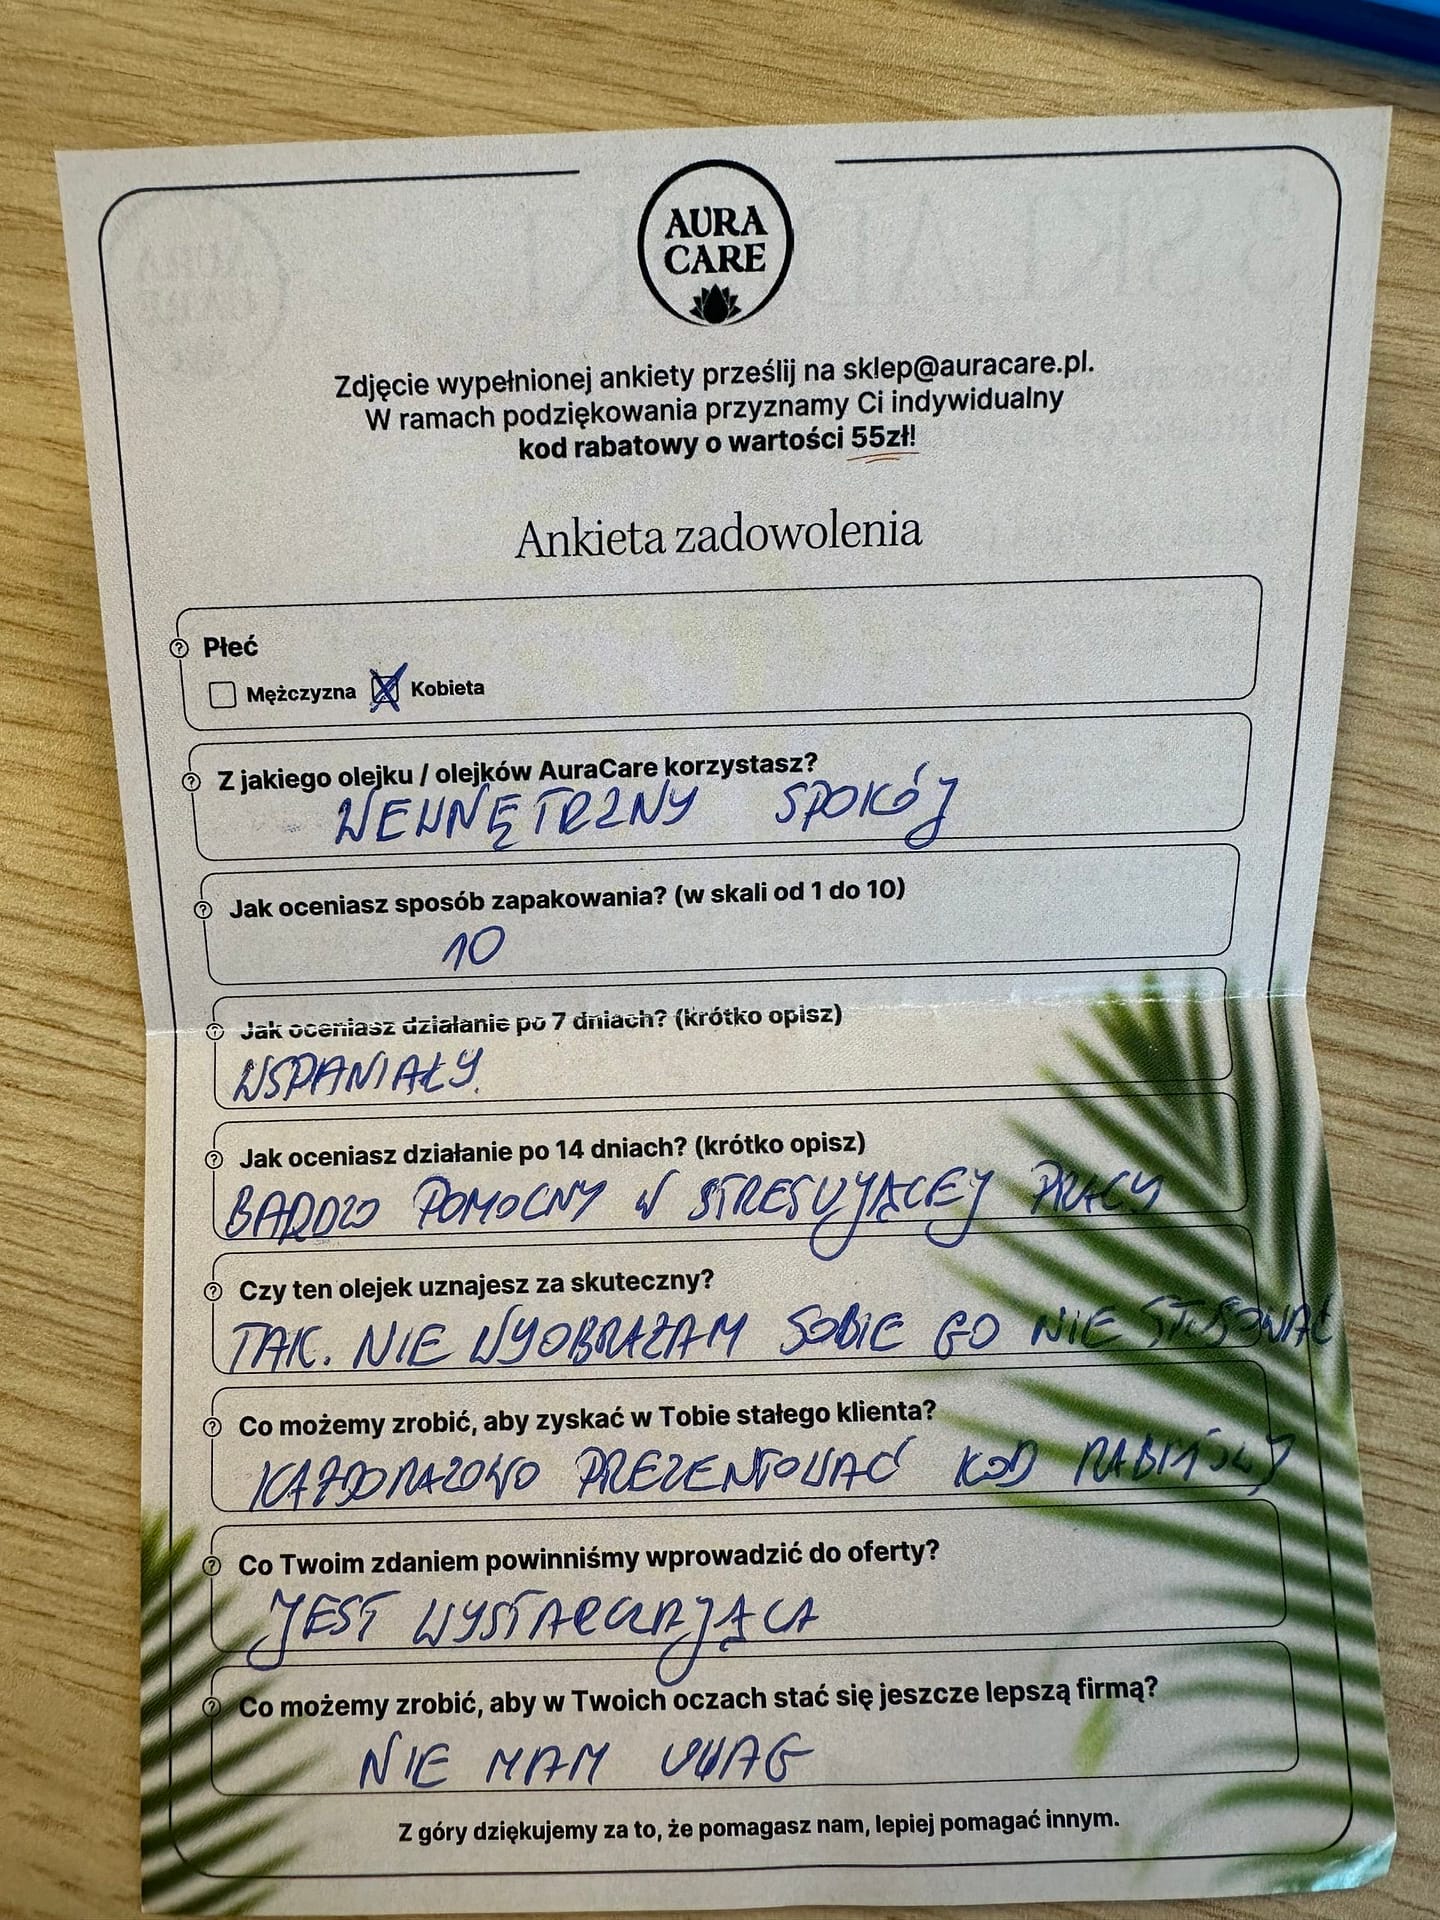 AURA
CARE
Zdjęcie wypełnionej ankiety prześlij na sklep@auracare.pl.
W ramach podziękowania przyznamy Ci indywidualny
kod rabatowy o wartości 55zł!
Ankieta zadowolenia
Płeć
Mężczyzna Kobieta
Z jakiego olejku / olejków AuraCare korzystasz?
WEWNĘTRZNY SPOKÓJ
Jak oceniasz sposób zapakowania? (w skali od 1 do 10)
10
Jak oceniasz działanie po 7 dniach? (krótko opisz)
WSPANIAŁY.
Jak oceniasz działanie po 14 dniach? (krótko opisz)
BARDZO POMOCNY W STRESUJĄCEJ PRACY
Czy ten olejek uznajesz za skuteczny?
TAK. NIE WYOBRAŻAM SOBIE GO NIE STOSOWAĆ
Co możemy zrobić, aby zyskać w Tobie stałego klienta?
KAŻDORAZOWO PREZENTOWAĆ KOD RABATOWY
Co Twoim zdaniem powinniśmy wprowadzić do oferty?
JEST WYSTARCZAJĄCA
Co możemy zrobić, aby w Twoich oczach stać się jeszcze lepszą firmą?
NIE MAM UWAG
Z góry dziękujemy za to, że pomagasz nam, lepiej pomagać innym.